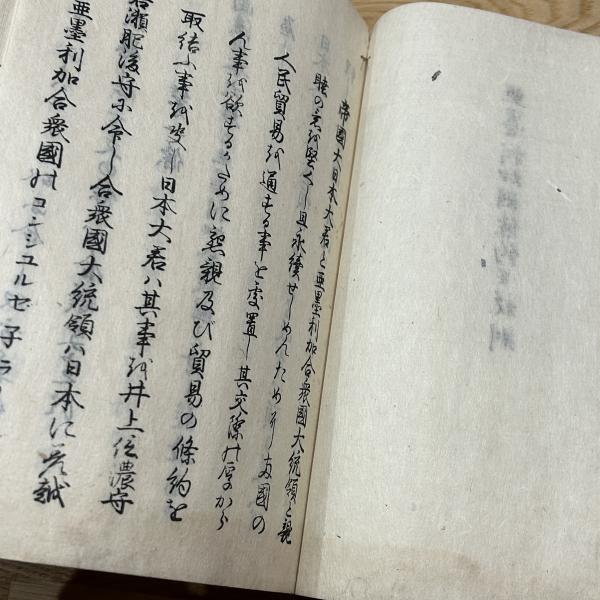 帝國大日本大君と亜墨利加合衆國大統領と親
睦の意を堅くし且永續せしめんために両國の
人民貿易を通する事を處置し其交際の厚から
ん事を欲するために懇親及び貿易の條約を
取結ふ事を決し日本大君ハ其事を井上信濃守
岩瀬肥後守に命し合衆國大統領ハ日本に差越
亜墨利加合衆國のコンシユルセ子ラ